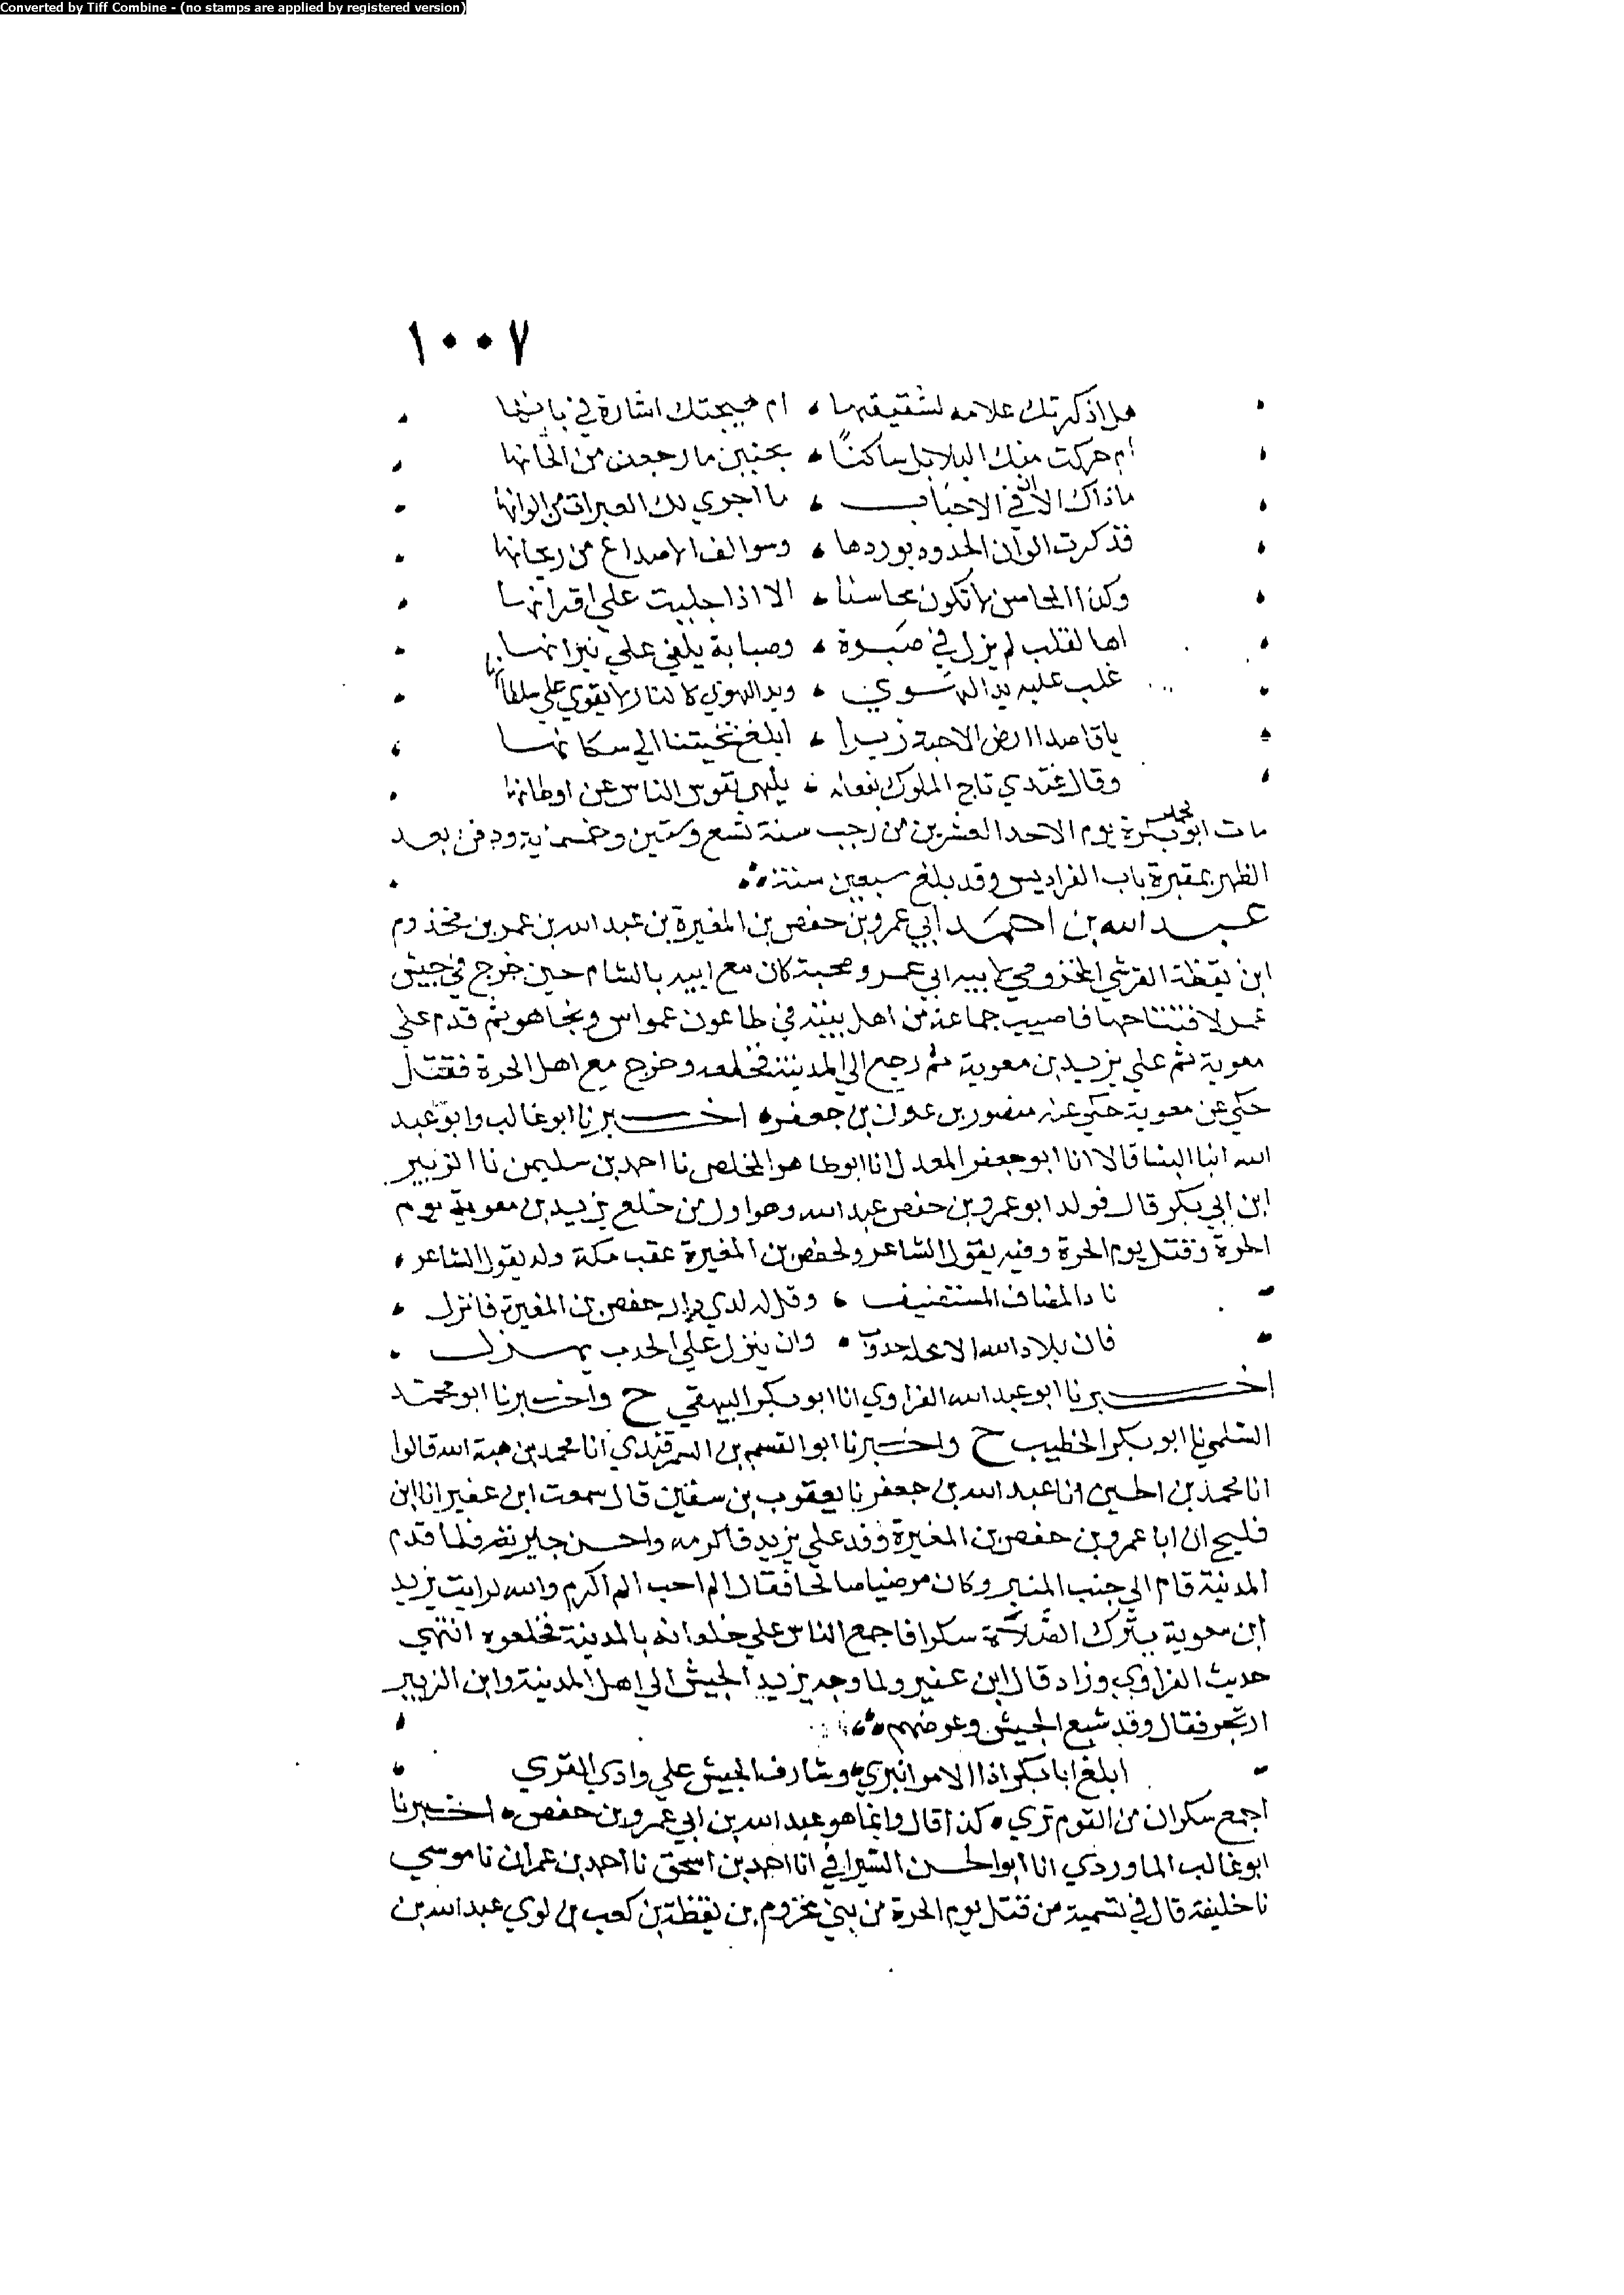 Converted by Tiff Combine - (no stamps are applied by registered version)
١٠٠٧
هل اذكرتك علامه لشقيقها ام هيجتك اشارة في بانها
ام حركت منك البلابل ساكنًا بحنين ما رجعن من الحانها
ماذاك الا في الاحباب ما اجري لك العبرات من الوانها
فذكرت الوان الخدود بوردها وسوالف الاصداغ من ريحانها
وكذا المحاسن لا تكون محاسنا الا اذا جليت علي اقرانها
اها لقلب لم يزل في صبوة وصبابة يلقي علي نيرانها
غلب عليه يد الهوي ويد الهوي لا يقوي علي سلطانها
يا قاصدا ارض الاحبة زيرا ابلغ تحيتنا الي سكانها
وقال عندي تاج الملوك بفعاله يلهي نفوس الناس عن اوطانها
مات ابو محمد بكرة يوم الاحد العشرين من رجب سنة تسع وستين وخمسماية ودفن بعد
الظهر بمقبرة باب الفراديس وقد بلغ سبعين سنة
عبد الله بن احمد ابي عمرو بن حفص بن المغيرة بن عبد الله بن عمر بن مخذوم
ابن يقظة القرشي المخزومي لابيه ابي عمرو صحبة كان مع ابيه بالشام حين خرج في جيش
عمر لافتتاحها فاصيب جماعة من اهل بيته في طاعون عمواس ونجا هو ثم قدم علي
معوية ثم علي يزيد بن معوية ثم رجع الي المدينة فخلعه وخرج مع اهل الحرة فقتل
حكي عن معوية حكي عنه منصور بن عون بن جعفر اخبرنا ابو غالب وابو عبد
الله انبا البنا قالا انا ابو جعفر المعدل انا ابو طاهر المخلص نا احمد بن سليمن نا الزبير
ابن ابي بكر قال فولد ابو عمرو بن حفص عبد الله وهو اول من خلع يزيد بن معوية يوم
الحرة وقتل يوم الحرة وفيه يقول الشاعر ولحفص بن المغيرة عقب مكة وله يقول الشاعر
ناد المضاف المستضيف وقل له لدي دار حفص بن المغيرة فانزل
فان بلاد الله الا محله جدوب وان ينزل علي الجدب يهزل
اخبرنا ابو عبد الله الفراوي انا ابو بكر البيهقي ح واخبرنا ابو محمد
السلمي نا ابو بكر الخطيب ح واخبرنا ابو القسم بن السمرقندي انا محمد بن هبة الله قالوا
انا محمد بن الحسين انا عبد الله بن جعفر نا يعقوب بن سفين قال سمعت ابن عفير انا ابن
فليح ان ابا عمرو بن حفص بن المغيرة وفد علي يزيد فاكرمه واحسن جايزته فلما قدم
المدينة قام الي جنب المنبر وكان مرضيا صالحا فقال الم احب الم اكرم والله لرايت يزيد
ابن معوية يترك الصلاة سكرا فاجمع الناس علي خلعانه بالمدينة فخلعوه انتهي
حديث الفراوي وزاد قال ابن عفير ولما وجه يزيد الجيش الي اهل المدينة وابن الزبير
ارتجز فقال وقد شيع الجيش وعرضهم
ابلغ ابا بكر اذا الامر انبري وشارف الجيش علي وادي القري
اجمع سكران من القوم تري كذا قال وانما هو عبد الله بن ابي عمرو بن حفص اخبرنا
ابو غالب الماوردي انا ابو الحسن السيرافي انا احمد بن اسحق نا احمد بن عمران نا موسي
نا خليفة قال في تسمية من قتل يوم الحرة من بني مخزوم بن يقظة بن كعب بن لوي عبد الله بن